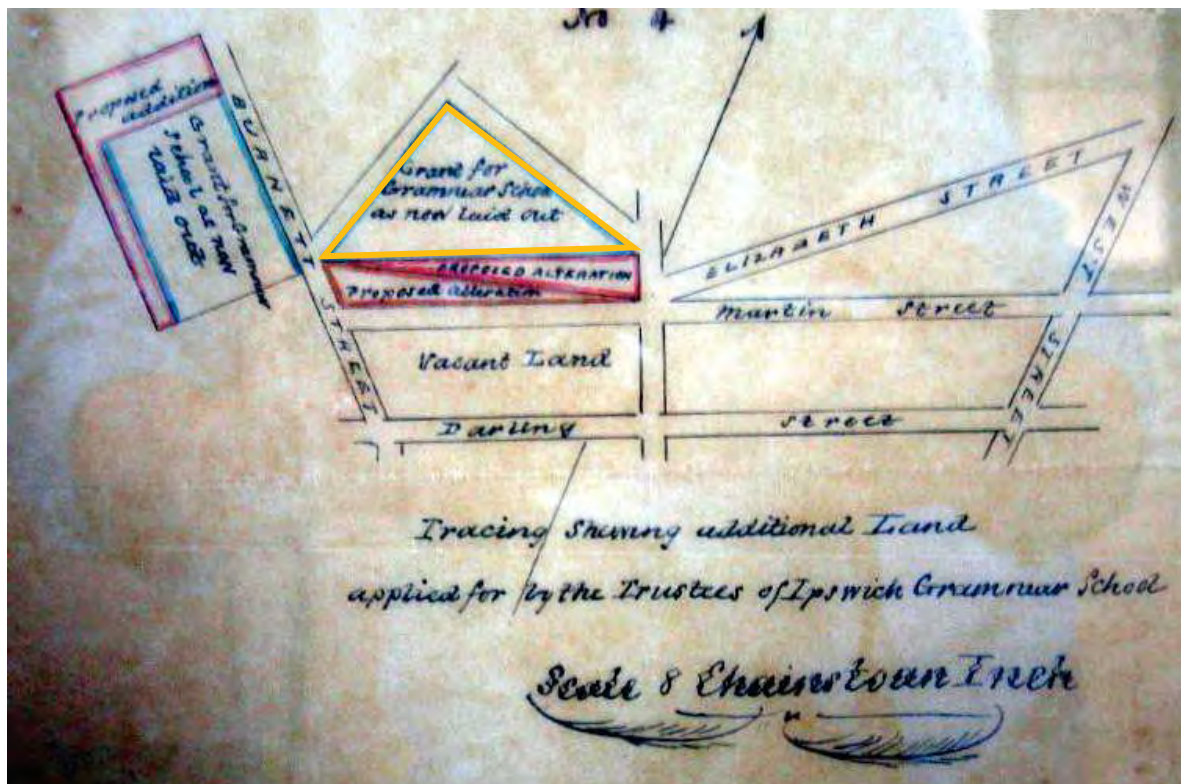 No 4
Proposed
addition
Grant for Grammar
School as now
laid out
BURNETT STREET
Grant for
Grammar School
as now laid out
PROPOSED ALTERATION
Proposed alteration
ELIZABETH STREET
WEST STREET
Martin Street
Vacant Land
Darling Street
Tracing Shewing additional Land
applied for by the Trustees of Ipswich Grammar School
Scale 8 Chains to an Inch